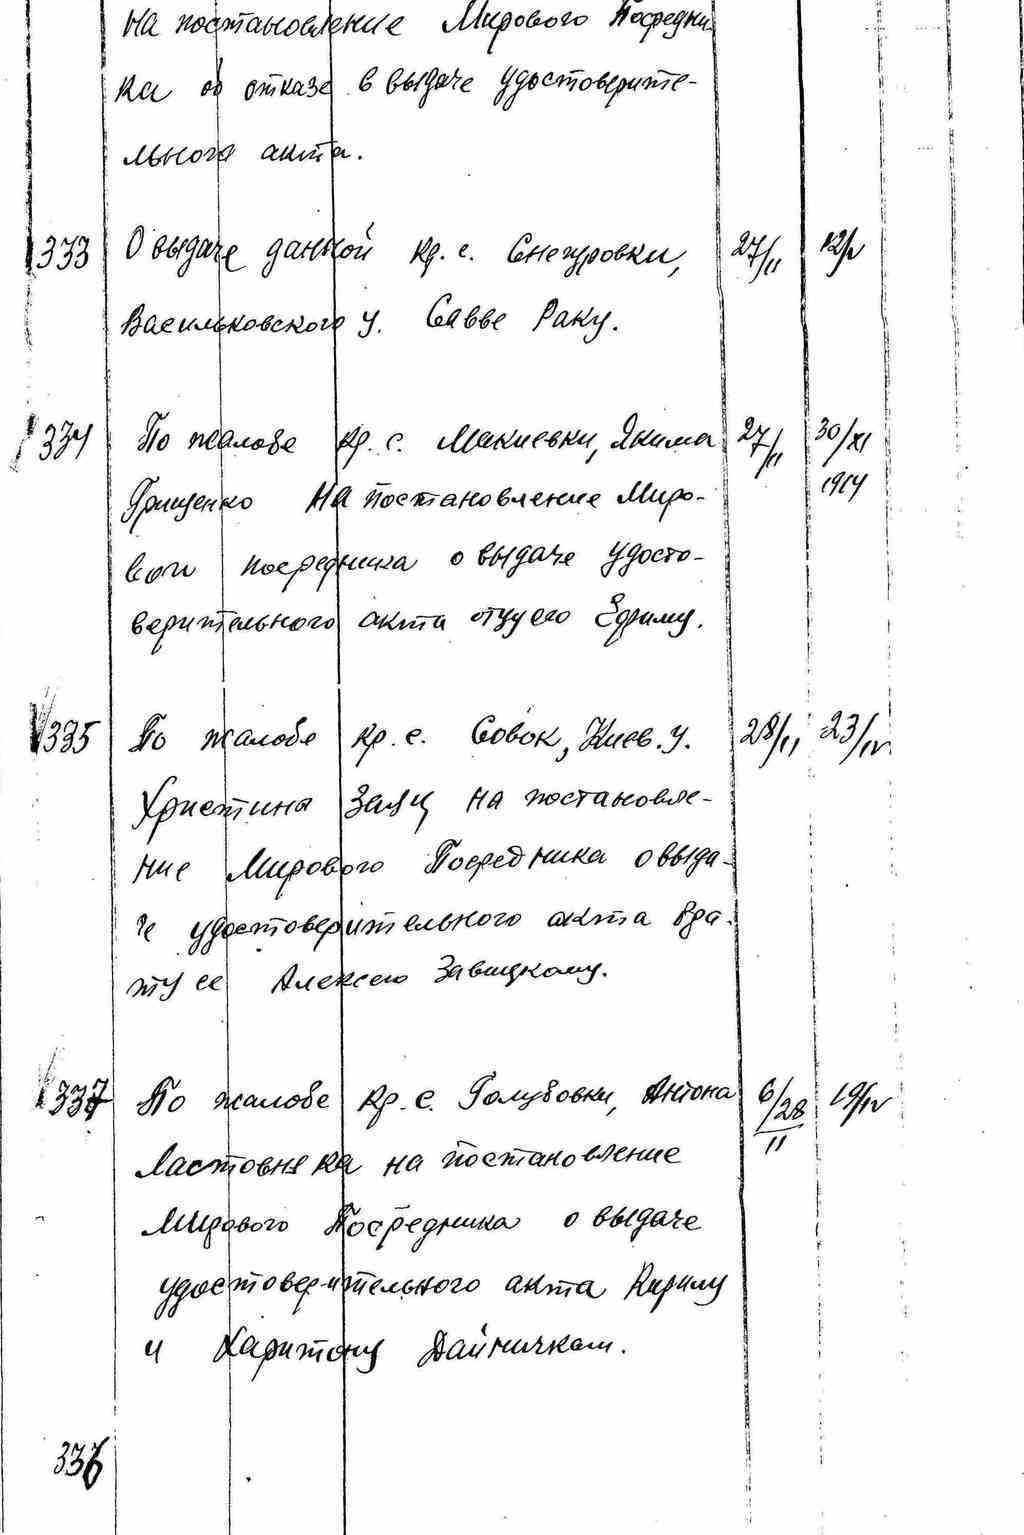 на постановление Мирового Посредни
ка об отказе в выдаче удостоверите-
льного акта.
333 О выдаче данной кр. с. Снегуровки, 27/II 12/V
Васильковского у. Савве Раку.
334 По жалобе кр. с. Макиевки, Якима 27/II 30/XI
Грищенко на постановление Миро- 1914
вого посредника о выдаче удосто-
верительного акта отцу его Ефриму.
335 По жалобе кр. с. Совок, Киев. у. 28/II 23/IV
Христины Заяц на постановле-
ние Мирового Посредника о выда-
че удостоверительного акта бра-
ту ее Алексею Завицкому.
337 По жалобе кр. с. Голубовки, Антона 6/28 19/IV
II
Ластовняка на постановление
Мирового Посредника о выдаче
удостоверительного акта Кирилу
и Харитону Дайничкам.
336